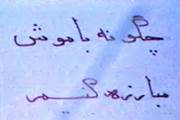 چگونه با موش
مبارزه کنیم